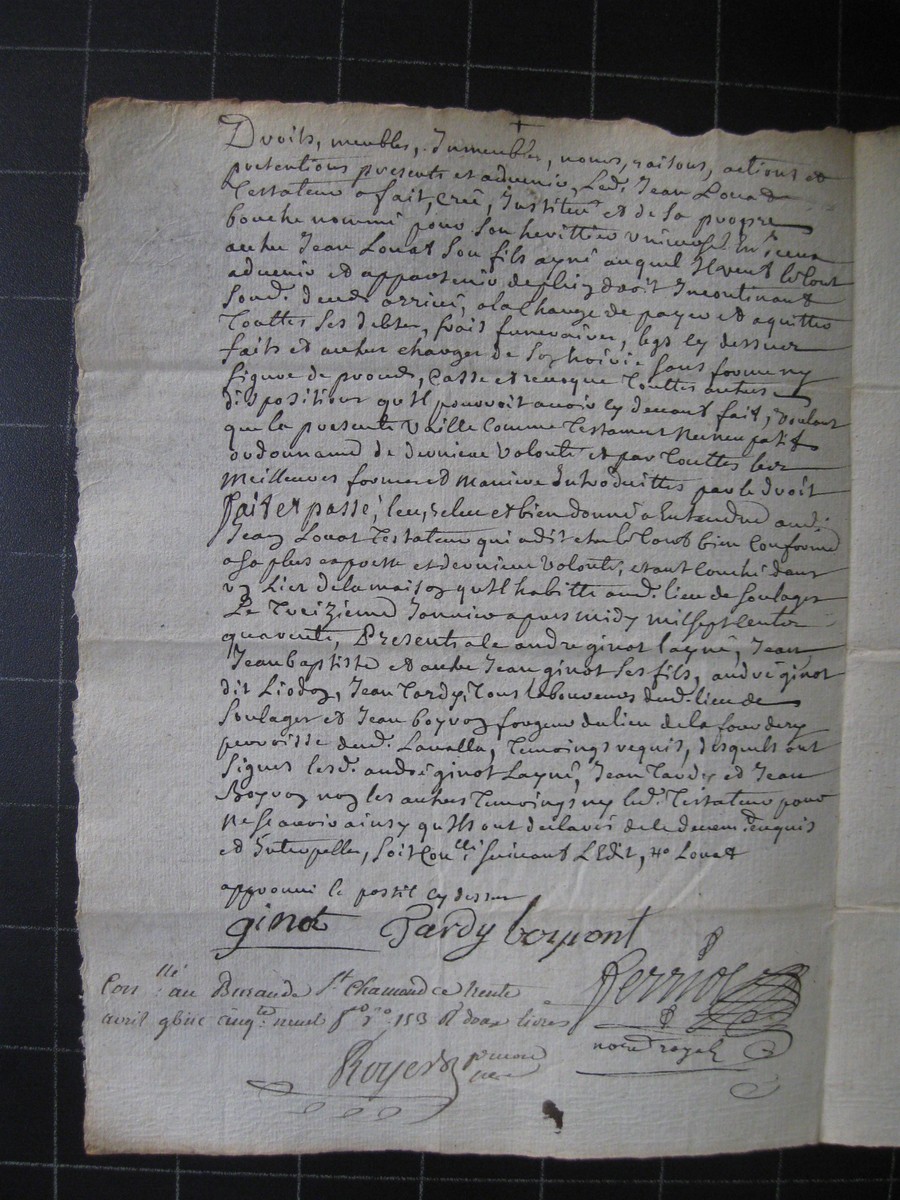 Droits, meubles, Immeubles, noms, raisons, actions et
pretentions presents et advenir, Led. Jean Louat
Testateur a fait, Creé, Institué et de sa propre
bouche nommé pour son herittier universel
autre Jean Louat son fils ayné auquel Il veut le tout
advenir et appartenir de plein droit Incontinant
sond. deceds arrivé, a la Charge de payer et aquitter
Touttes ses debtes, frais funeraires, legs cy dessus
faits et autres charges de son hoirie sans forme ny
figure de proces, Casse et revoque Touttes autres
dispositions qu'Il pourroit avoir cy devant fait, voulant
que la presente vaille Comme Testament Nuncupatif
ordonnance de derniere volonté et par Touttes les
Meilleures formes et Maniere Introduittes par le droit
fait et passé, leu, releu et bien donné a Entendre aud.
Jean Louat Testateur qui a dit etre le tout bien Conforme
a sa plus expresse et derniere volonté, etant couché dans
un Lict de la maison qu'Il habitte aud. lieu de Soulages
Le Treizieme Janvier apres midy mil sept cents
quarente, Presents a ce andre ginot layné, Jean
Jean baptiste et autre Jean ginot ses fils, andré ginot
dit Liodon, Jean Tardy, Tous laboureurs dud. lieu de
Soulages et Jean boyron forgeur du lieu de la
parroisse dud. Lavalla, Temoings requis, desquels ont
Signes lesd. andré ginot Layné, Jean Tardy et Jean
Boyron non les autres Temoings ny led. Testateur pour
Ne scavoir ainsy qu'Ils ont declarés de ce deuem. Enquis
et Interpellés, soit Con.llé suivant L'Edit, Louat
approuvé le postil cy dessus
ginot Tardy
Con.llé au Bureau de St Chamond ce trente
avril cinq.te neuf 153 R. douze livres
notre royal
Royer